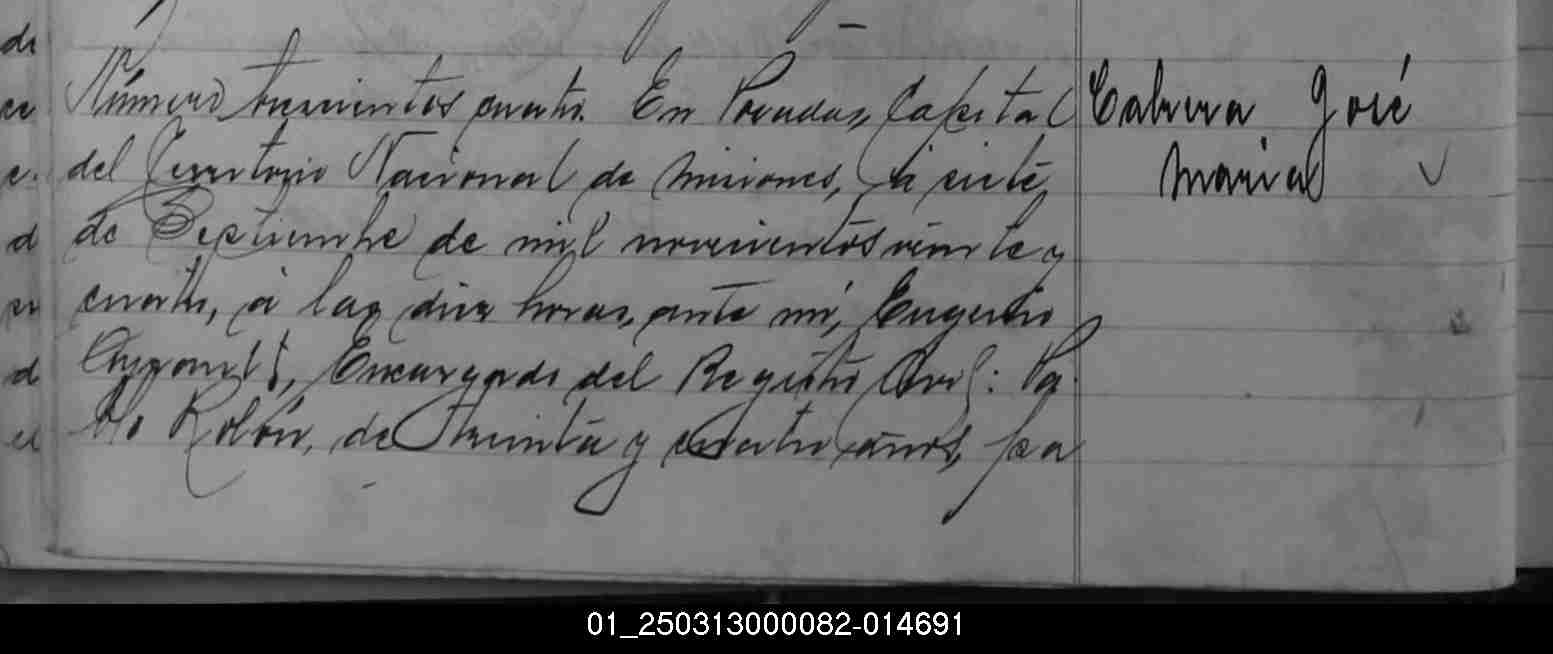 de
Número trescientos cuatro. En Posadas, Capital
del Territorio Nacional de Misiones, á siete
de Septiembre de mil novecientos veinte y
cuatro, á las diez horas, ante mí, Eugenio
Encargado del Registro Civil: Pa-
blo Rolón, de treinta y cuatro años, pa
Cabrera José
Maria
01_250313000082-014691